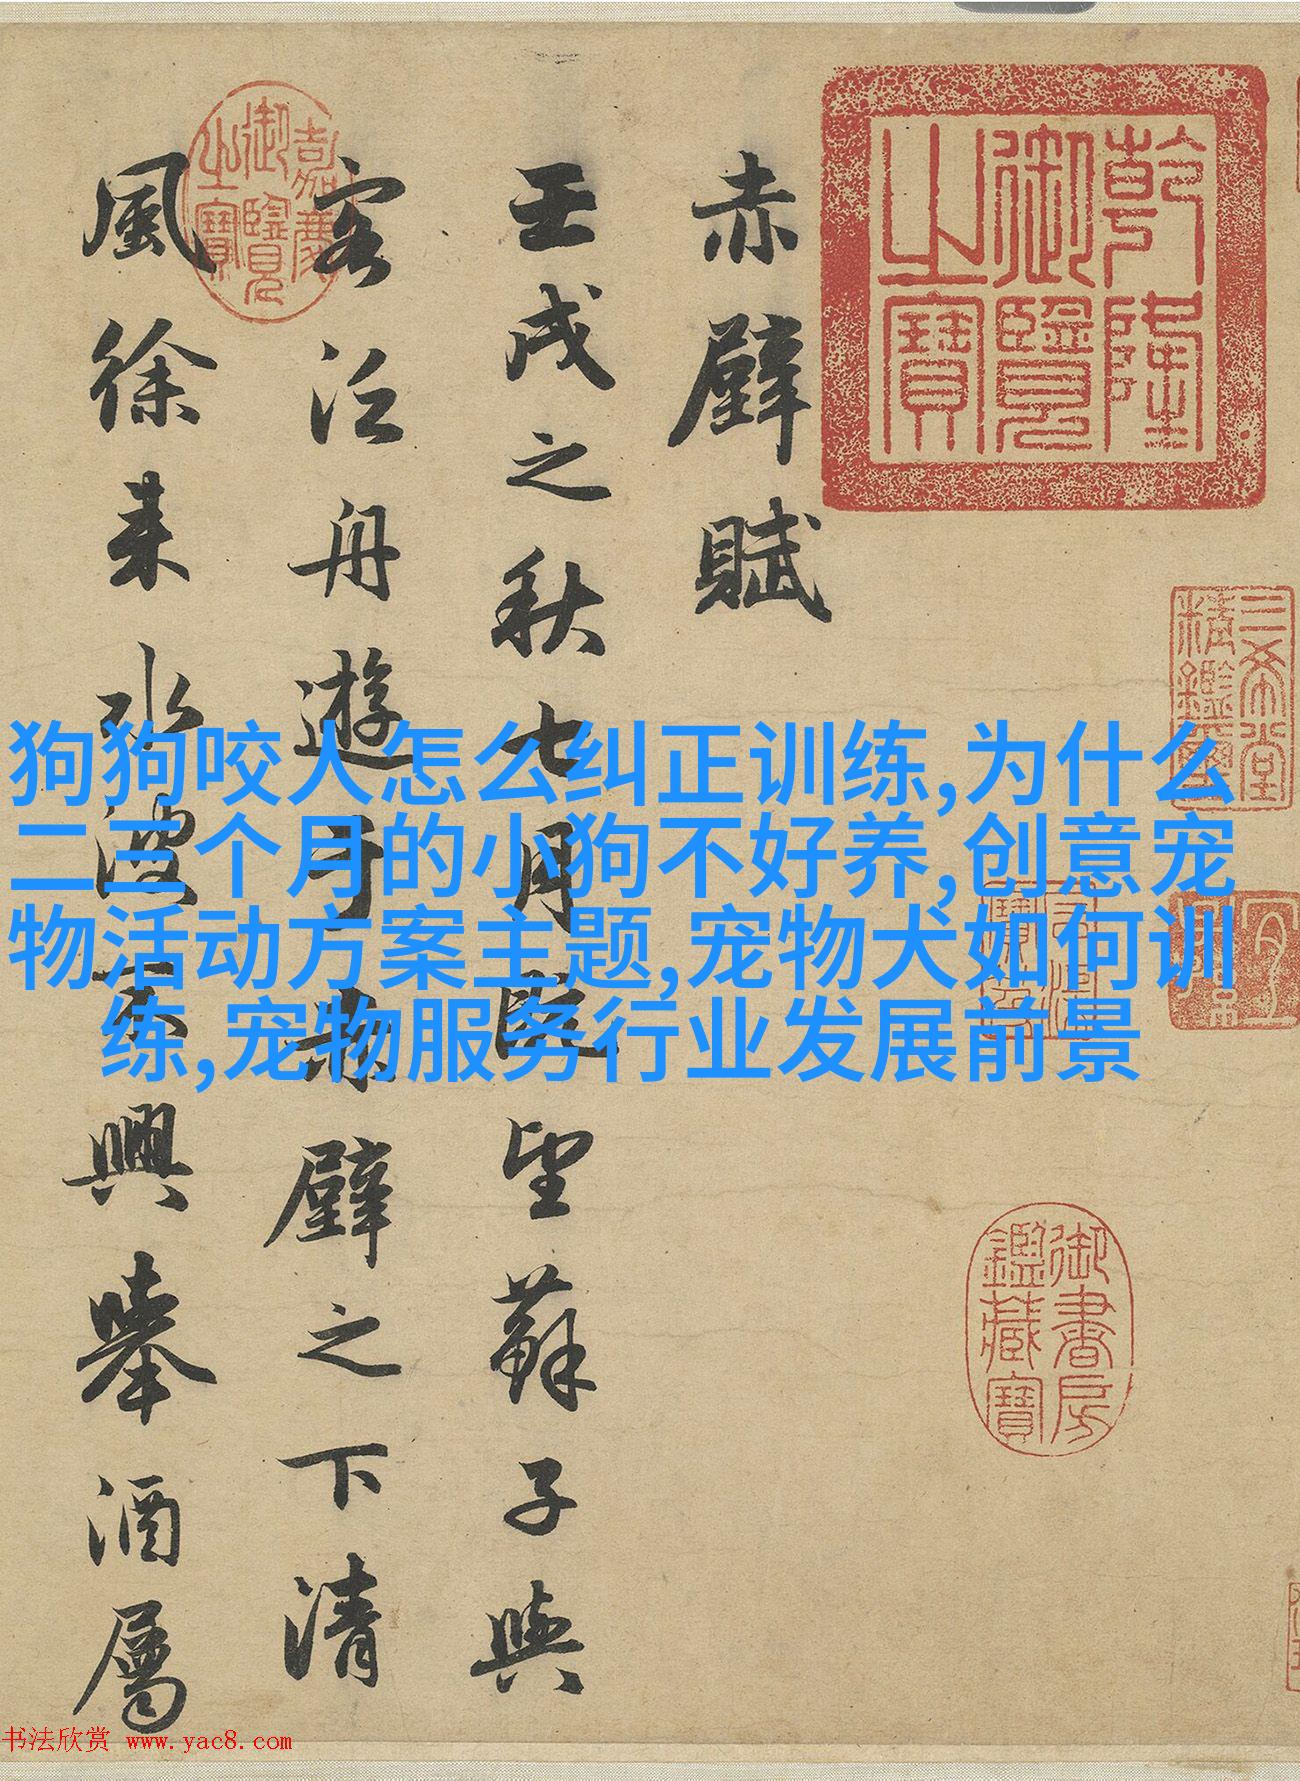 乾隆
御覽
之寶
三希堂
精鑑璽
御書房
鑑藏寶
赤壁賦
壬戌之秋七月既望蘇子與
客泛舟遊于赤壁之下清
風徐来水波不興舉酒屬
嘉慶
御覽
之寶
狗狗咬人怎么纠正训练,为什么
二三个月的小狗不好养,创意宠
物活动方案主题,宠物犬如何训
练,宠物服务行业发展前景
书法欣赏 www.yac8.com